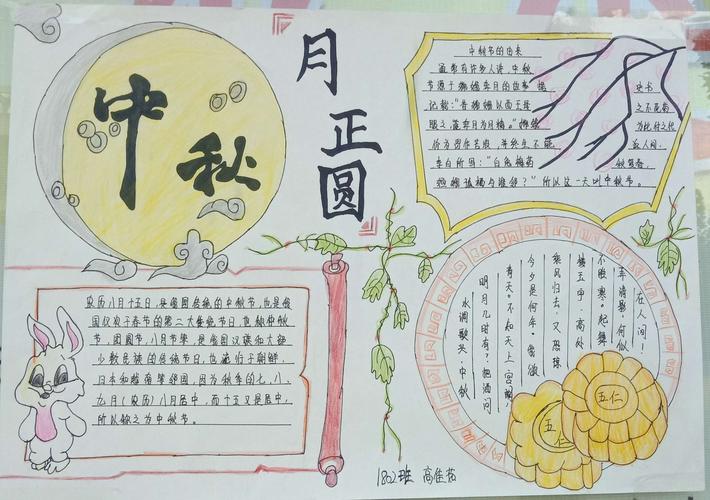 中秋
月正圆
中秋节的由来
虽常有许多人讲，中秋
节源于嫦娥奔月的故事"据
史书
记载："昔嫦娥以西王母
之不死药
服之，遂奔月为月精。"嫦娥
李白所写："白兔捣药
嫦娥孤栖与谁邻？"所以这一天叫中秋节。
农历八月十五日，是我国传统的中秋节，也是我
国仅次于春节的第二大传统节日，也称仲秋
节，团圆节，八月节等，是我国汉族和大部
少数民族的传统节日，也流行于朝鲜，
日本和越南等邻国，因为秋季的七、八、
九月（农历）八月居中，而十五又是居中，
所以称之为中秋节。
水调歌头·中秋
明月几时有？把酒问
青天。不知天上宫阙，
今夕是何年。我欲
乘风归去，又恐琼
楼玉宇，高处
不胜寒。起舞
弄清影，何似
在人间！
五仁
五仁
1802班 高佳茹